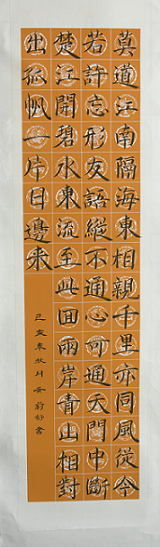 莫道江南隔海東相親千里亦同風從今
若許忘形友語縱不通心可通天門中斷
楚江開碧水東流至此回兩岸青山相對
出孤帆一片日邊來
己亥 秋月 書